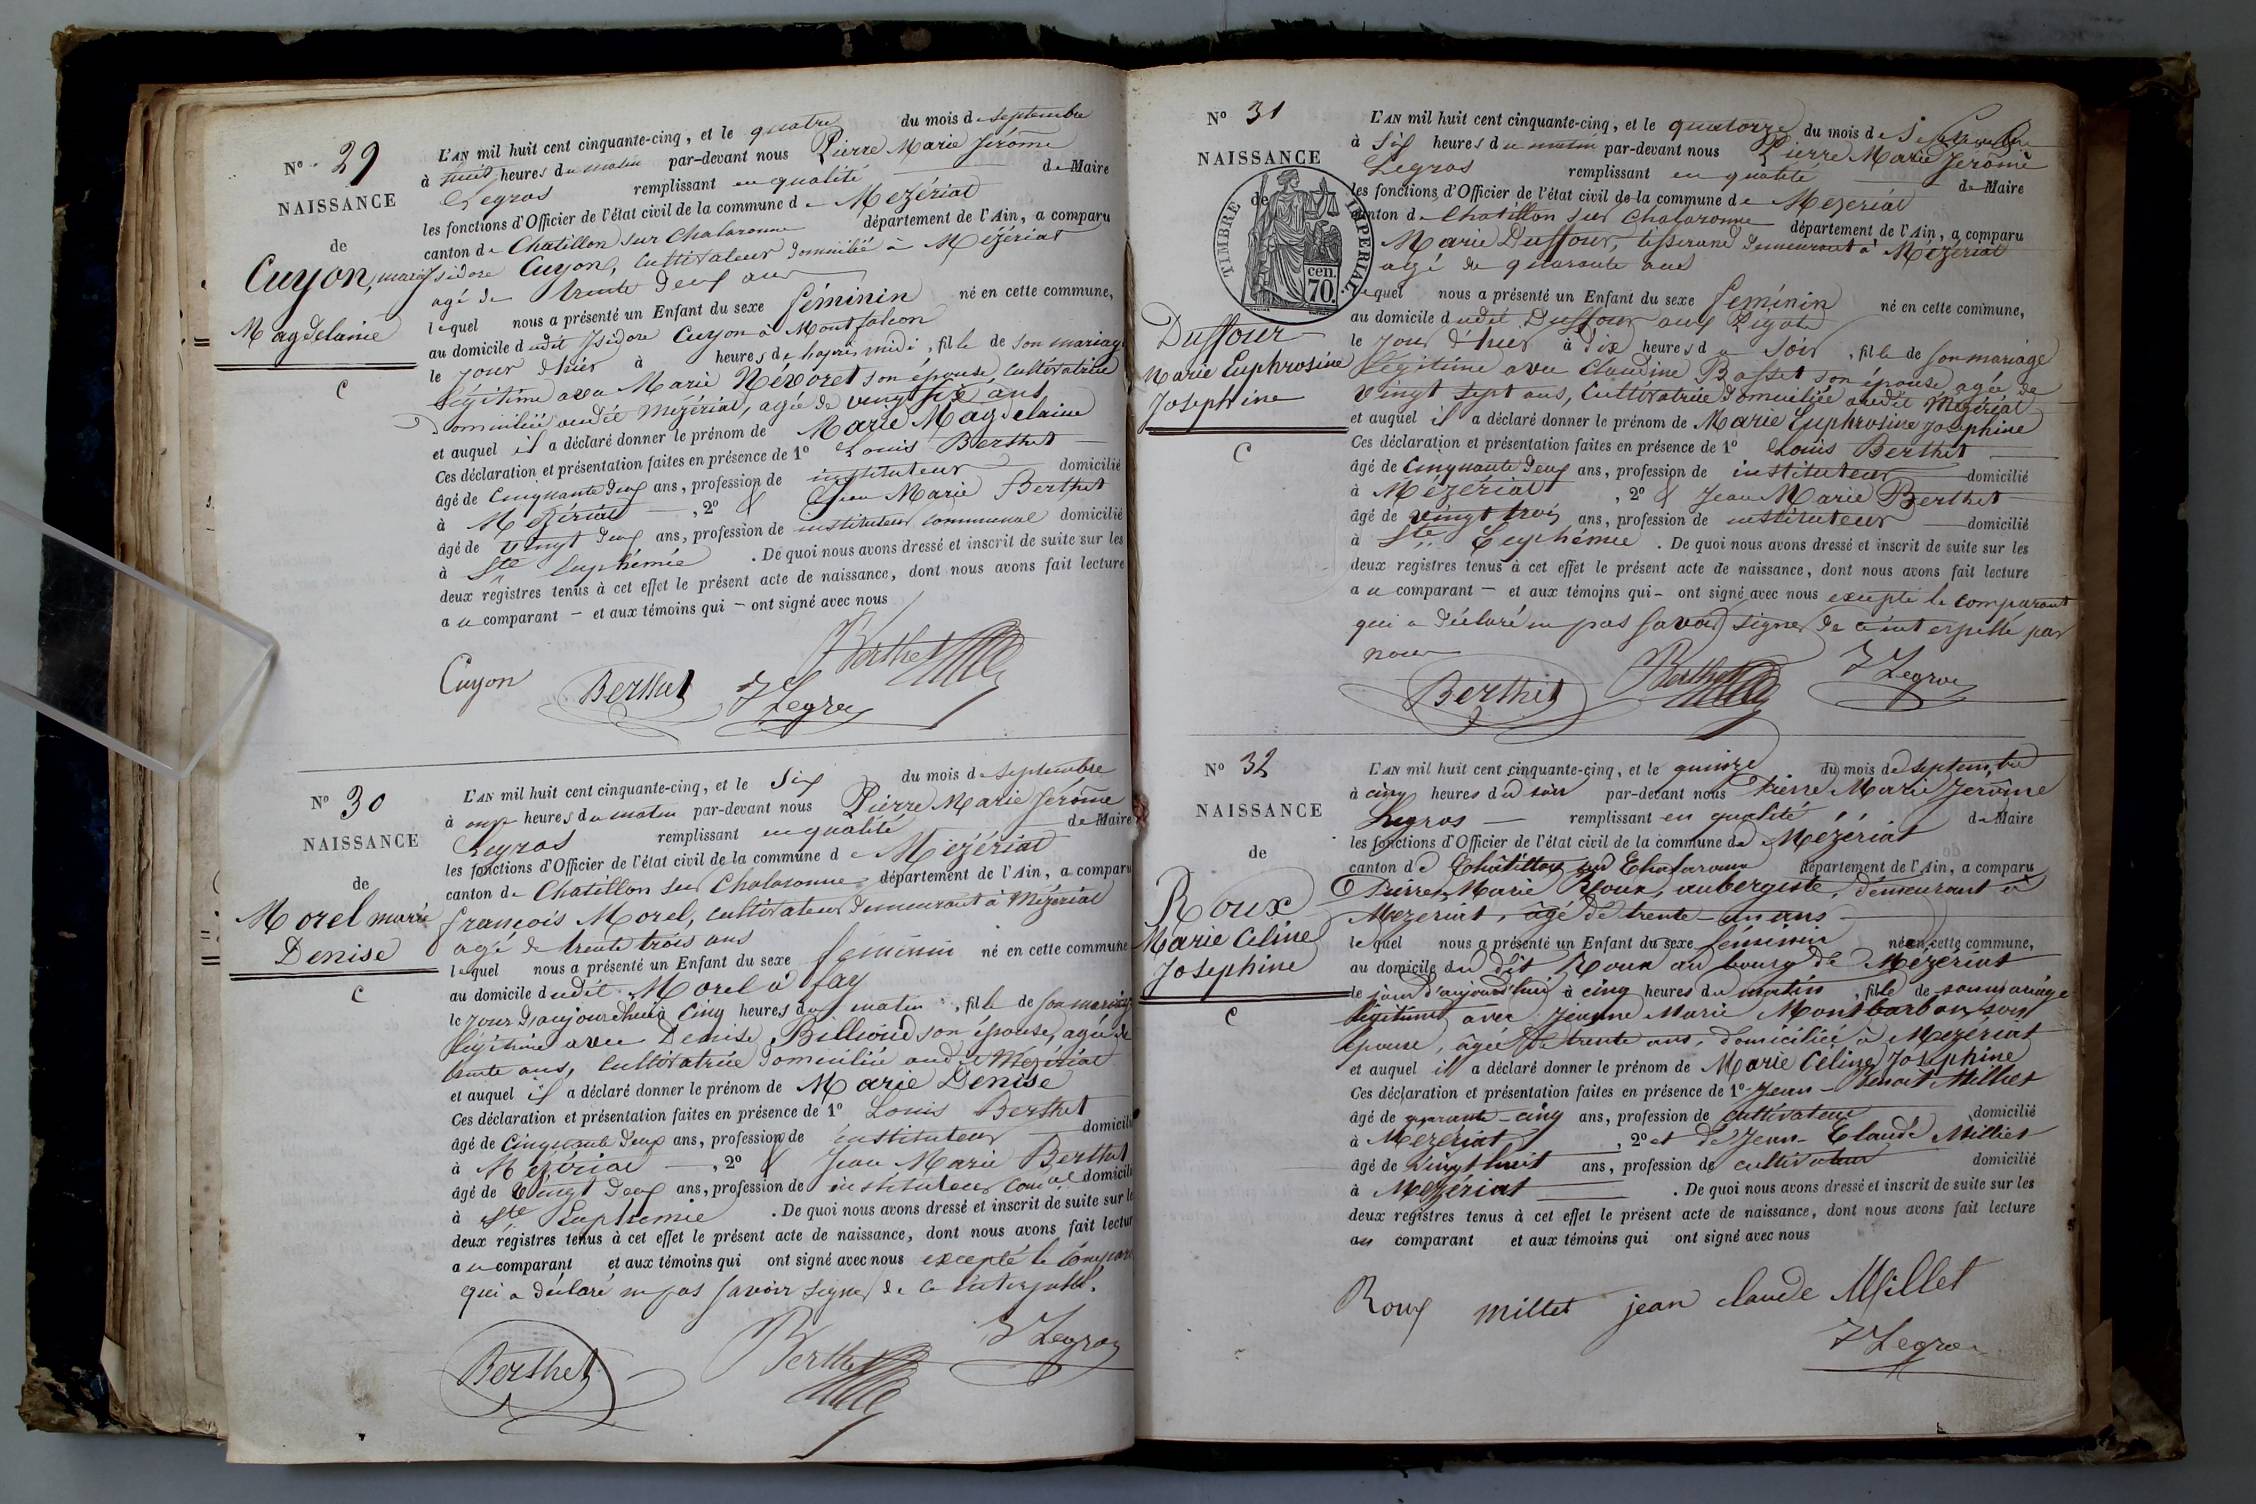 Nº 29
NAISSANCE
de
Cuyon, marie
Magdelaine
C
L'AN mil huit cent cinquante-cinq, et le quatre du mois de septembre
à huit heures du matin par-devant nous Pierre Marie Jérôme
Legros remplissant en qualité de Maire
les fonctions d'Officier de l'état civil de la commune de Mézériat
canton de Chatillon sur Chalaronne département de l'Ain, a comparu
Isidore Cuyon, cultivateur domicilié à Mézériat
agé de trente deux ans
lequel nous a présenté un Enfant du sexe féminin né en cette commune,
au domicile dudit Isidore Cuyon à Montfalcon
le jour d'hier à heures de l'après midi, fille de son mariage
légitime avec Marie Névoret son épouse, cultivatrice
domiciliée audit Mézériat, agée de vingt six ans
et auquel il a déclaré donner le prénom de Marie Magdelaine
Ces déclaration et présentation faites en présence de 1º Louis Berthet
âgé de cinquante deux ans, profession de instituteur domicilié
à Mézériat, 2º & Jean Marie Berthet
âgé de vingt deux ans, profession de instituteur communal domicilié
à Ste Euphémie. De quoi nous avons dressé et inscrit de suite sur les
deux registres tenus à cet effet le présent acte de naissance, dont nous avons fait lecture
au comparant — et aux témoins qui — ont signé avec nous
Berthet
Cuyon Berthet J Legros
Nº 30
NAISSANCE
de
Morel marie
Denise
C
L'AN mil huit cent cinquante-cinq, et le six du mois de septembre
à onze heures du matin par-devant nous Pierre Marie Jerôme
Legros remplissant en qualité de Maire
les fonctions d'Officier de l'état civil de la commune de Mézériat
canton de Chatillon sur Chalaronne département de l'Ain, a comparu
françois Morel, cultivateur demeurant à Mézériat
agé de trente trois ans
lequel nous a présenté un Enfant du sexe feminin né en cette commune
au domicile dudit Morel à fay
le jour d'aujourd'hui à cinq heures du matin, fille de son mariage
légitime avec Denise Billioud son épouse, agée de
trente ans, cultivatrice domiciliée audit Mézériat
et auquel il a déclaré donner le prénom de Marie Denise
Ces déclaration et présentation faites en présence de 1º Louis Berthet
âgé de cinquante deux ans, profession de instituteur domicilié
à Mézériat —, 2º & Jean Marie Berthet
âgé de vingt deux ans, profession de instituteur comal domicilié
à Ste Euphémie. De quoi nous avons dressé et inscrit de suite sur le
deux registres tenus à cet effet le présent acte de naissance, dont nous avons fait lectur
au comparant et aux témoins qui ont signé avec nous excepté le compara
qui a déclaré ne pas savoir signer de ce interpellé.
Berthet Berthet J Legros
Nº 31
NAISSANCE
de
TIMBRE IMPERIAL
cen.
70.
Duffour
Marie Euphrosine
Josephine
C
L'AN mil huit cent cinquante-cinq, et le quatorze du mois de Septembre
à six heures du matin par-devant nous Pierre Marie Jerôme
Legros remplissant en qualité de Maire
les fonctions d'Officier de l'état civil de la commune de Mezeriat
canton de Chatillon sur Chalaronne département de l'Ain, a comparu
Marie Duffour, tisserand demeurant à Mézériat
agé de quarante ans
lequel nous a présenté un Enfant du sexe feminin né en cette commune,
au domicile dudit Duffour aux
le jour d'hier à dix heures du soir, fille de son mariage
légitime avec Claudine Basset son épouse agée de
vingt sept ans, Cultivatrice domiciliée audit Mézériat
et auquel il a déclaré donner le prénom de Marie Euphrosine Josephine
Ces déclaration et présentation faites en présence de 1º Louis Berthet
âgé de cinquante deux ans, profession de instituteur domicilié
à Mézériat, 2º & Jean Marie Berthet
âgé de vingt trois ans, profession de instituteur domicilié
à Ste Euphémie. De quoi nous avons dressé et inscrit de suite sur les
deux registres tenus à cet effet le présent acte de naissance, dont nous avons fait lecture
au comparant — et aux témoins qui - ont signé avec nous excepté le comparant
qui a déclaré ne pas savoir signer de ce interpellé par
nous
Berthet Berthet J Legros
Nº 32
NAISSANCE
de
Roux
Marie Celine
Josephine
C
L'AN mil huit cent cinquante-cinq, et le quinze du mois de septembre
à cinq heures du soir par-devant nous Pierre Marie Jerôme
Legros — remplissant en qualité de Maire
les fonctions d'Officier de l'état civil de la commune de Mézériat
canton de Châtillon sur Chalaronne département de l'Ain, a comparu
Pierre Marie Roux, aubergiste, demeurant à
Mezeriat, âgé de trente un ans
lequel nous a présenté un Enfant du sexe féminin née en cette commune,
au domicile du dit Roux au bourg de Mézériat
le jour d'aujourd'hui à cinq heures du matin, fille de son mariage
légitime avec Jeanne Marie Montbarbon son
épouse, âgée de trente ans, domiciliée à Mezériat
et auquel il a déclaré donner le prénom de Marie Céline Joséphine
Ces déclaration et présentation faites en présence de 1º Jean-Benoit Milliet
âgé de quarante-cinq ans, profession de cultivateur domicilié
à Mezériat, 2º et de Jean-Claude Milliet
âgé de vingt huit ans, profession de cultivateur domicilié
à Mezériat. De quoi nous avons dressé et inscrit de suite sur les
deux registres tenus à cet effet le présent acte de naissance, dont nous avons fait lecture
au comparant et aux témoins qui ont signé avec nous
Roux millet jean claude Millet
J Legros